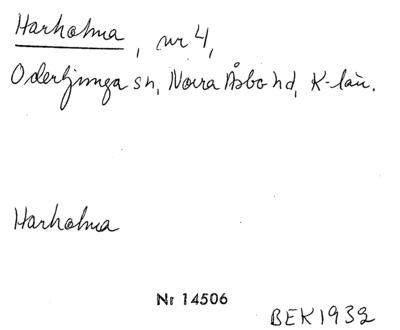 Harholma, nr 4,
Oderljunga sn, Norra Åsbo hd, K-län.
Harholma
Nr 14506
BEK1932